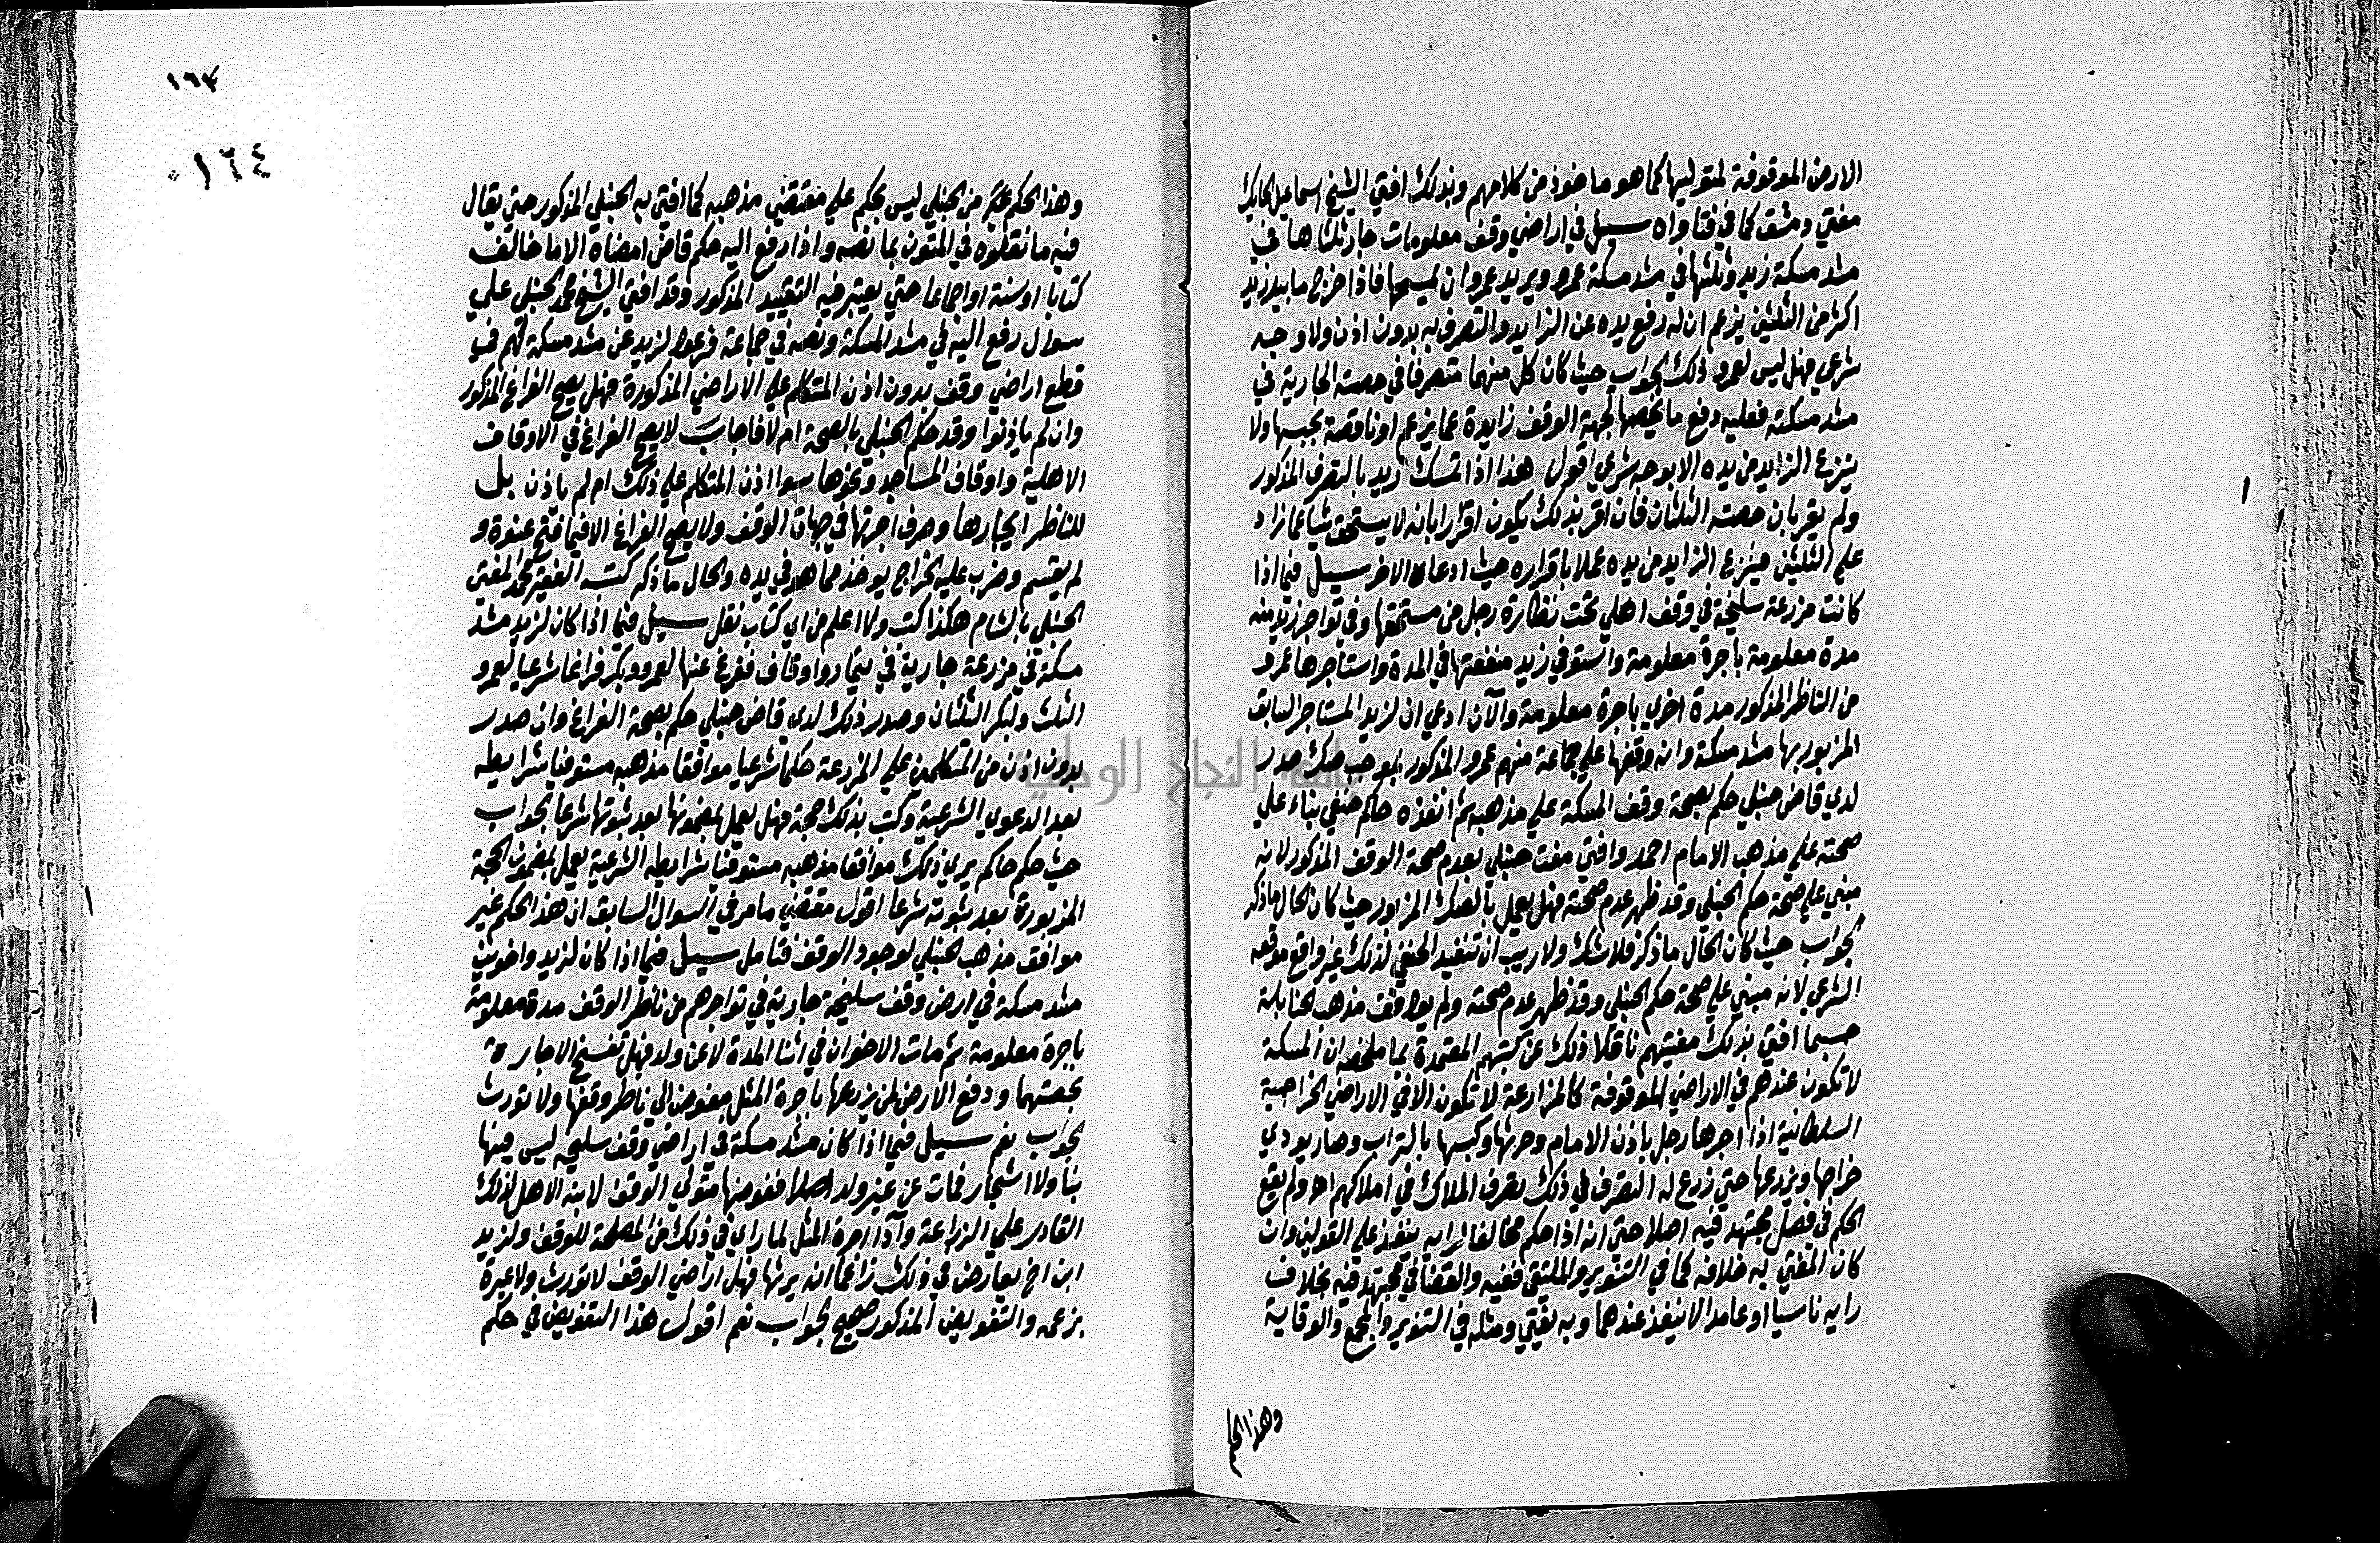 الارض الموقوفة لمتوليها كما هو ماخوذ من كلامهم وبذلك افتي الشيخ اسماعيل الحايك
مفتي دمشق كما في فتاواه سيل في اراضي وقف معلومات جار ثلثاها في
مشد مسكة زيد وثلثها في مشد مسكة عمرو ويريد عمرو ان يمسحها فاذا خرج ما بيد زيد
اكثر من الثلثين يزعم ان له رفع يده عن الزايد والتصرف به بدون اذن ولا وجه
شرعي فهل ليس لعمرو ذلك الجواب حيث كان كل منهما متصرفا في حصته الجارية في
مشد مسكته فعليه دفع ما يخصها لجهة الوقف زايدة عما يزعم او ناقصة بحبسها ولا
ينزع الزايد من يده الا بوجه شرعي اقول هذا اذا تمسك زيد بالتصرف المذكور
ولم يقر بان حصته الثلثان فان اقر بذلك يكون اقرارا بانه لا يستحق شيا مما زاد
علي الثلثين فينزع الزايد من يده عملا باقراره حيث ادعاه الاخر سيل فيما اذا
كانت مزرعة سليخة في وقف اهلي تحت نظارة رجل من مستحقها وفي تواجر زيد منه
مدة معلومة باجرة معلومة واستوفي زيد منفعتها في المدة واستاجرها عمرو
من الناظر المذكور مدة اخري باجرة معلومة والان ادعي ان لزيد المستاجر السابق
المزبور بها مشد مسكة وانه وقفها علي جماعة منهم عمرو المذكور بموجب صك صدر
لدي قاض حنبلي حكم بصحة وقف المسكة علي مذهبه ثم انفذه حاكم حنفي بناء علي
صحته علي مذهب الامام احمد وافتي مفت حنبلي بعدم صحة الوقف المذكور لانه
مبني علي صحة حكم الحنبلي وقد ظهر عدم صحته فهل يعمل بالصك المزبور حيث كان الحال ما ذكر
الجواب حيث كان الحال ما ذكر فلا شك ولا ريب ان تنفيذ الحنفي لذلك غير واقع موقعه
الشرعي لانه مبني علي صحة حكم الحنبلي وقد ظهر عدم صحته ولم يوافق مذهب الحنابلة
حسبما افتي بذلك مفتيهم ناقلا ذلك عن كتبهم المعتمدة بما ملخصه ان المسكة
لا تكون عندهم في الاراضي الموقوفة كالمزارعة لا تكون الا في الاراضي الخراجية
السلطانية اذا اجرها رجل باذن الامام وحرثها وكبسها بالتراب وصار يودي
خراجها ويزرعها حتي زرع له التصرف في ذلك تصرف الملاك في املاكهم اه ولم يقع
الحكم في فصل مجتهد فيه اصلا حتي انه اذا حكم مخالفا لرايه ينفذ علي القولين وان
كان المفتي به خلافه كما في التنوير والملتقى ففيه والقضا في مجتهد فيه بخلاف
رايه ناسيا او عامدا لا ينفذ عندهما وبه يفتي ومثله في التنوير والمجمع والوقاية
وهذا الحكم
١٦٣
١٦٤
وهذا الحكم من الحنبلي ليس بحكم علي مقتضي مذهبه كما افتي به الحنبلي المذكور حتي يقال
فيه ما نقلوه في المتون بما نصه واذا رفع اليه حكم قاض امضاه الا ما خالف
كتابا او سنة او اجماعا حتي يعتبر فيه التقييد المذكور وقد افتي الشيخ محمد الحنبلي علي
سوال رفع اليه في مشد المسكة ونصه في جماعة فرغوا لزيد عن مشد مسكة لهم في
قطع اراضي وقف بدون اذن المتكلم علي الاراضي المذكورة فهل يصح الفراغ المذكور
وان لم ياذنوا وقد حكم الحنبلي بالصحة ام لا فاجاب لا يصح الفراغ في الاوقاف
الاهلية واوقاف المساجد ونحوها سوا اذن المتكلم علي ذلك ام لم ياذن بل
للناظر ايجارها وصرف اجرتها في جهات الوقف ولا يصح الفراغ الا فيما فتح عنوة و
لم يقسم وضرب عليه الخراج يوخذ مما هو في يده والحال ما ذكر كتبه الفقير محمد المفتي
الحنبلي بالشام هكذا كتب ولا اعلم من اي كتاب نقل سيل فيما اذا كان لزيد مشد
مسكة في مزرعة جارية في تيمار واوقاف ففرغ عنها لعمرو وبكر فراغا شرعيا لعمرو
الثلث ولبكر الثلثان وصدر ذلك لدي قاض حنبلي حكم بصحة الفراغ وان صدر
بدون اذن من المتكلمين علي المزرعة حكما شرعيا موافقا مذهبه مستوفيا شرايطه
بعد الدعوي الشرعية وكتب بذلك حجة فهل يعمل بمضمونها بعد ثبوتها شرعا الجواب
حيث حكم حاكم يري ذلك موافقا مذهبه مستوفيا شرايطه الشرعية يعمل بمضمون الحجة
المزبورة بعد ثبوته شرعا اقول مقتضي ما مر في السوال السابق ان هذا الحكم غير
موافق مذهب الحنبلي لوجود الوقف فتامل سيل فيما اذا كان لزيد واخوين
مشد مسكة في ارض وقف سليخة جارية في تواجرهم من ناظر الوقف مدة معلومة
باجرة معلومة ثم مات الاخوان في اثنا المدة لا عن ولد فهل تنفسخ الاجارة
بحصتهما ودفع الارض لمن يزرعها باجرة المثل مفوض الي ناظر وقفها ولا تورث
الجواب نعم سيل فيما اذا كان مشد مسكة في اراضي وقف سليخه ليس فيها
بنا ولا اشجار فمات عن غير ولد اصلا ففوضها متولي الوقف لابنه الاهل لذلك
القادر علي الزراعة وادا اجرة المثل لما راي في ذلك من المصلحة للوقف ولزيد
ابن اخ يعارض في ذلك زاعما انه يرثها فهل اراضي الوقف لا تورث ولا عبرة
بزعمه والتفويض المذكور صحيح الجواب نعم اقول هذا التفويض في حكم